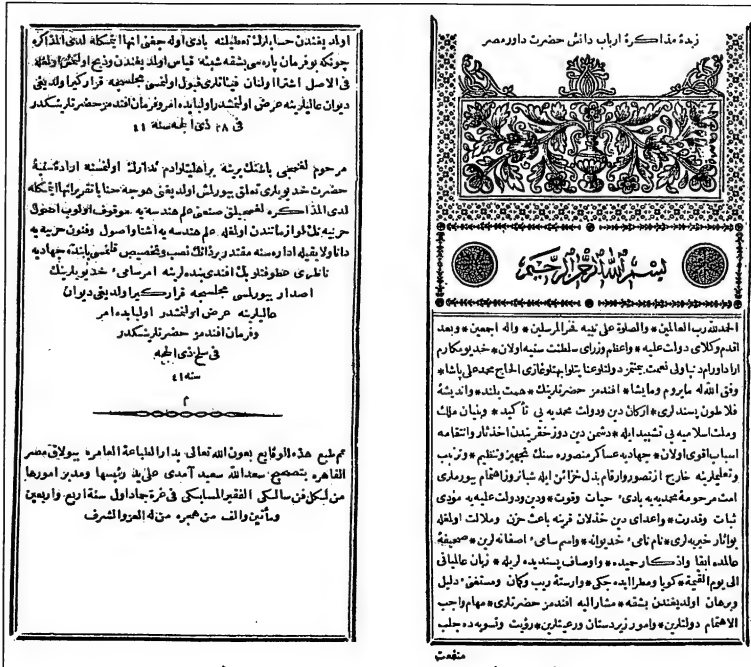 زبدۀ مذاكرۀ ارباب دانش حضرت داور مصر
بسم الله الرحمن الرحيم
الحمد لله رب العالمين * والصلوة على نبيه فخر المرسلين * واله اجمعين * وبعد
اقدم وكلاى دولت عليه * واعظم وزراى سلطنت سنيه اولان * خديو مكارم
ولى نعمت الحاج محمد على پاشا *
وفق الله له مايروم ومايشا * افندمز حضرتلرينك * همت بلند * وانديشۀ
فلاطون پسندلرى * اركان دين ودولت محمديه يى تأكيد * وبنيان ملك
وملت اسلاميه يى تشييد ايله * دشمن دين دوزخ قريندن اخذ ثار وانتقامه
اسباب اقوى اولان * جهاديه عساكر منصوره سنك تجهيز وتنظيم * وترتيب
وتعليملرينه خارج از تصور وارقام بذل خزائن ايله شبانروز اهتمام بيورملرى
امت مرحومۀ محمديه يه بادئ حيات وقوت * ودين ودولت عليه يه مؤدى
ثبات وقدرت * واعداى دين خذلان قرينه باعث حزن وملالت اولمغله
بو آثار خيريه لرى * نام نامئ خديوانه * واسم سامئ اصفانه لرين * صحيفۀ
عالمده ابقا واذكار حميده * واوصاف پسنديده لريله * زبان عالميانى
الى يوم القيمة * كويا ومعطر ايده جكى * وارستۀ ريب وكمان ومستغنئ دليل
وبرهان اولديغندن بشقه * مشار اليه افندمز حضرتلرى * مهام واجب
الاهتمام دولتلرين * وامور زيردستان ورعيتلرين * رؤيت وتسويه ده جلب
منفعت
اولديغندن حسابلرك تعطيلنه بادى اوله جغى انها ايتمكله لدى المذاكره
چونكه بو فرمان پاره سى بشقه شيئه قياس اولديغندن
فى الاصل اشترا اولنان فيئاتلرى قبول اولنمسى مجلسجه قراركير اولديغى
ديوان عاليلرينه عرض اولنمشدر اولبابده امر وفرمان افندمز حضرتلرينكدر
فى ٢٨ ذى الحجه سنه ٤١
مرحوم لغمجى باشنك يرينه بر اهليتلو ادم تدارك اولنمسنه ارادۀ سنيۀ
حضرت خديويارى تعلق بيورلمش اولديغنى خوجه حنا با تقرير انها ايتمكله
لدى المذاكره لغمجيلق صنعتى علم هندسه يه موقوف اولوب اصول
حربيه نك لوازماتندن اولمغله علم هندسه يه اشنا واصول وفنون حربيه يه
دانا ولايقيله اداره سنه مقتدر بر ذاتك نصب وتخصيص قلنمسى بابنده جهاديه
ناظرى عطوفتلو بك افندى بنده لرينه امر سامئ خديويلرينك
اصدار بيورلمسى مجلسجه قراركير اولديغى ديوان
عاليلرينه عرض اولنمشدر اولبابده امر
وفرمان افندمز حضرتلرينكدر
فى سلخ ذى الحجه
سنه ٤١
م
تم طبع هذه الوقايع بعون الله تعالى بدار الطباعة العامره ببولاق مصر
القاهره بتصحيح سعد الله سعيد آمدى على يد رئيسها ومدير امورها
من لكل فن سالكى الفقير المسابكى فى غرة جماد اول سنة اربع واربعين
ومأتين والف من هجره من له العز والشرف